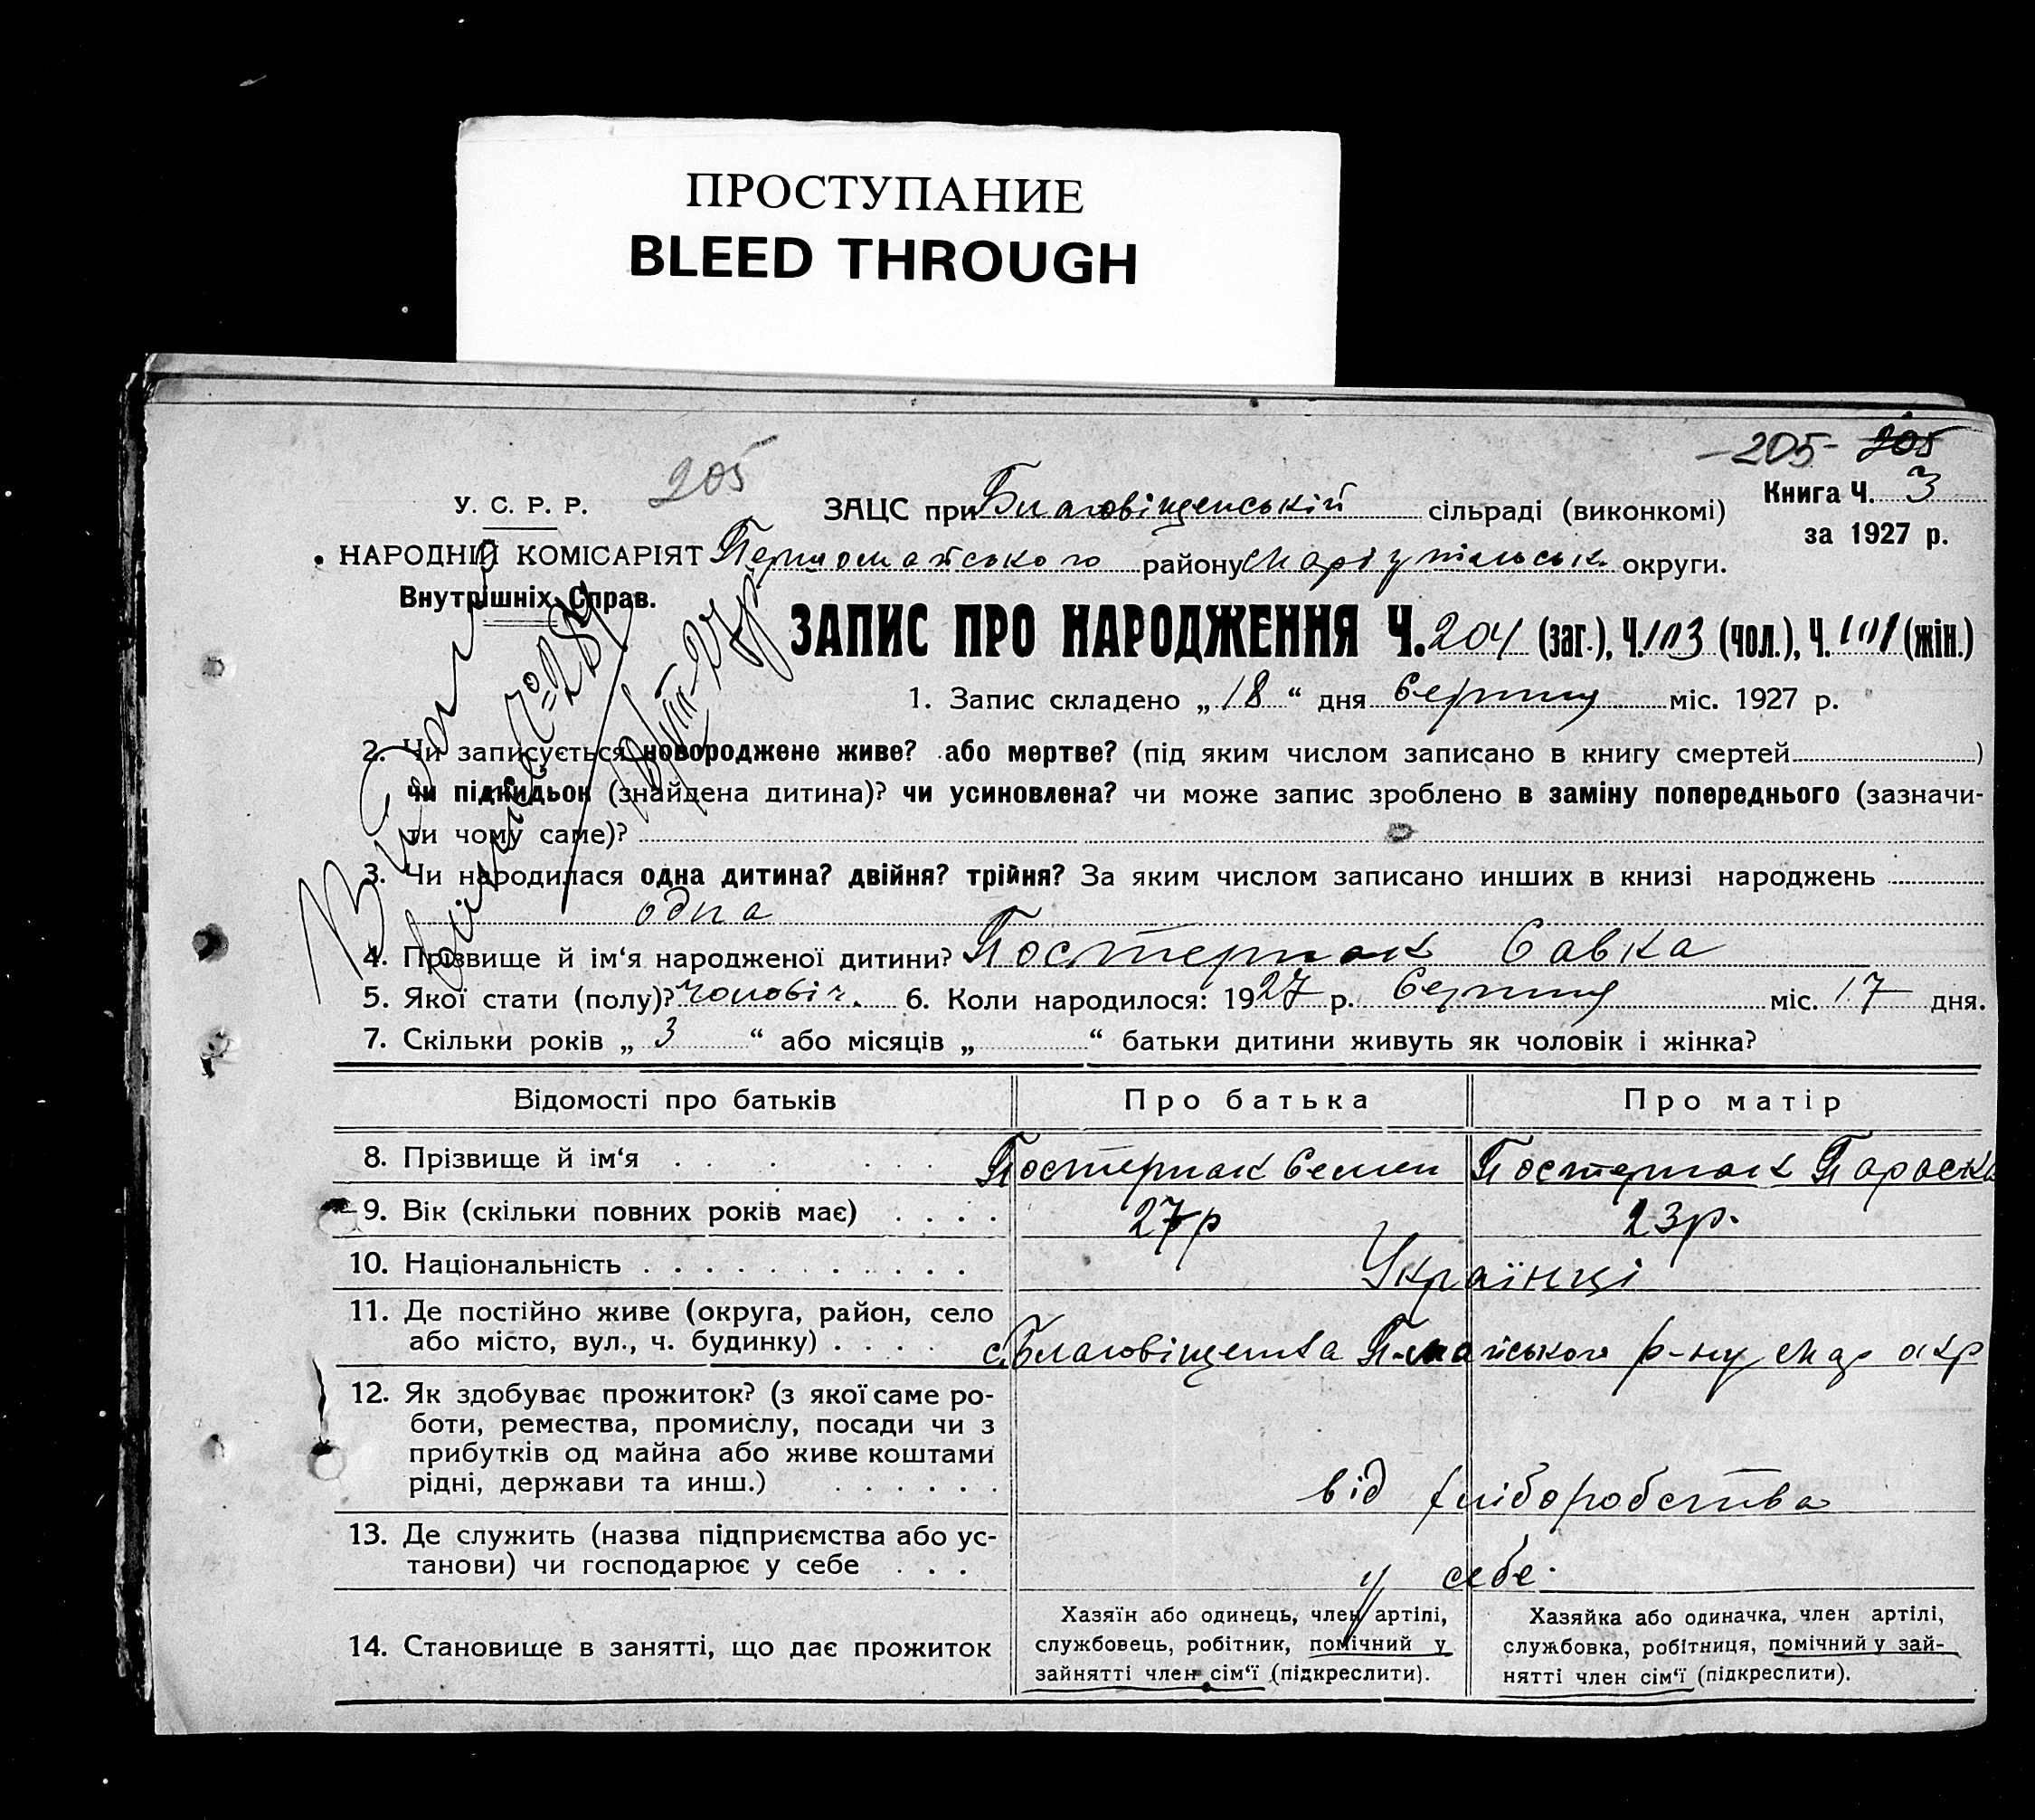 ПРОСТУПАНИЕ
BLEED THROUGH
-205- 205
205
Книга Ч. 3
за 1927 р.
У. С. Р. Р.
ЗАЦС при Благовіщенській сільраді (виконкомі)
НАРОДНІЙ КОМІСАРІЯТ Першомайського району Маріупільськ. округи.
Внутрішніх Справ.
ЗАПИС ПРО НАРОДЖЕННЯ Ч. 204 (заг.), Ч. 103 (чол.), Ч. 101 (жін.)
1. Запис складено „ 18 “ дня Серпня міс. 1927 р.
2. Чи записується новороджене живе? або мертве? (під яким числом записано в книгу смертей )
чи підкидьок (знайдена дитина)? чи усиновлена? чи може запис зроблено в заміну попереднього (зазначи-
ти чому саме)?
3. Чи народилася одна дитина? двійня? трійня? За яким числом записано инших в книзі народжень
одна
4. Прізвище й ім‘я народженої дитини? Постернак Савка
5. Якої стати (полу)? чоловіч. 6. Коли народилося: 1927 р. Серпня міс. 17 дня.
7. Скільки років „ 3 “ або місяців „ “ батьки дитини живуть як чоловік і жінка?
Відомості про батьків Про батька Про матір
8. Прізвище й ім‘я Постернак Семен Постернак Параска
9. Вік (скільки повних років має) 27р 23р.
10. Національність Українці
11. Де постійно живе (округа, район, село
або місто, вул., ч. будинку) с. Благовіщенка П-майського р-ну Мар окр
12. Як здобуває прожиток? (з якої саме ро-
боти, ремества, промислу, посади чи з
прибутків од майна або живе коштами
рідні, держави та инш.) від хліборобства
13. Де служить (назва підприємства або ус-
танови) чи господарює у себе у себе.
14. Становище в занятті, що дає прожиток
Хазяїн або одинець, член артілі,
службовець, робітник, помічний у
зайнятті член сім‘ї (підкреслити).
Хазяйка або одиначка, член артілі,
службовка, робітниця, помічний у зай-
нятті член сім‘ї (підкреслити).
Видана